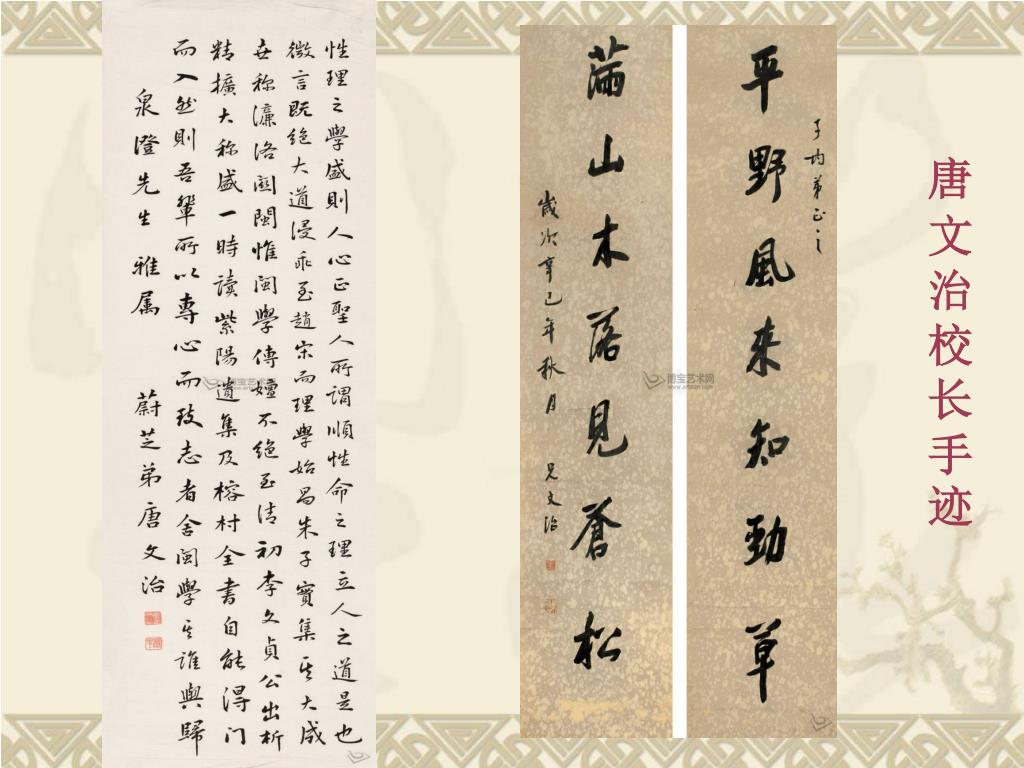 唐文治校长手迹
子均弟正之
平野風来知勁草
滿山木落見蒼松
歲次辛巳年秋月 兄文治
性理之學盛則人心正聖人所謂順性命之理立人之道是也
微言既絶大道浸乖至趙宋而理學始昌朱子實集其大成
世称濂洛関閩惟閩學傳嬗不絶至清初李文貞公出析
精擴大称盛一時讀紫陽遺集及榕村全書自能得门
而入然則吾輩所以專心而致志者舍閩學其誰與歸
泉澄先生雅属 蔚芝弟唐文治
博宝艺术网
www.artxun.com
博宝艺术网
www.artxun.com